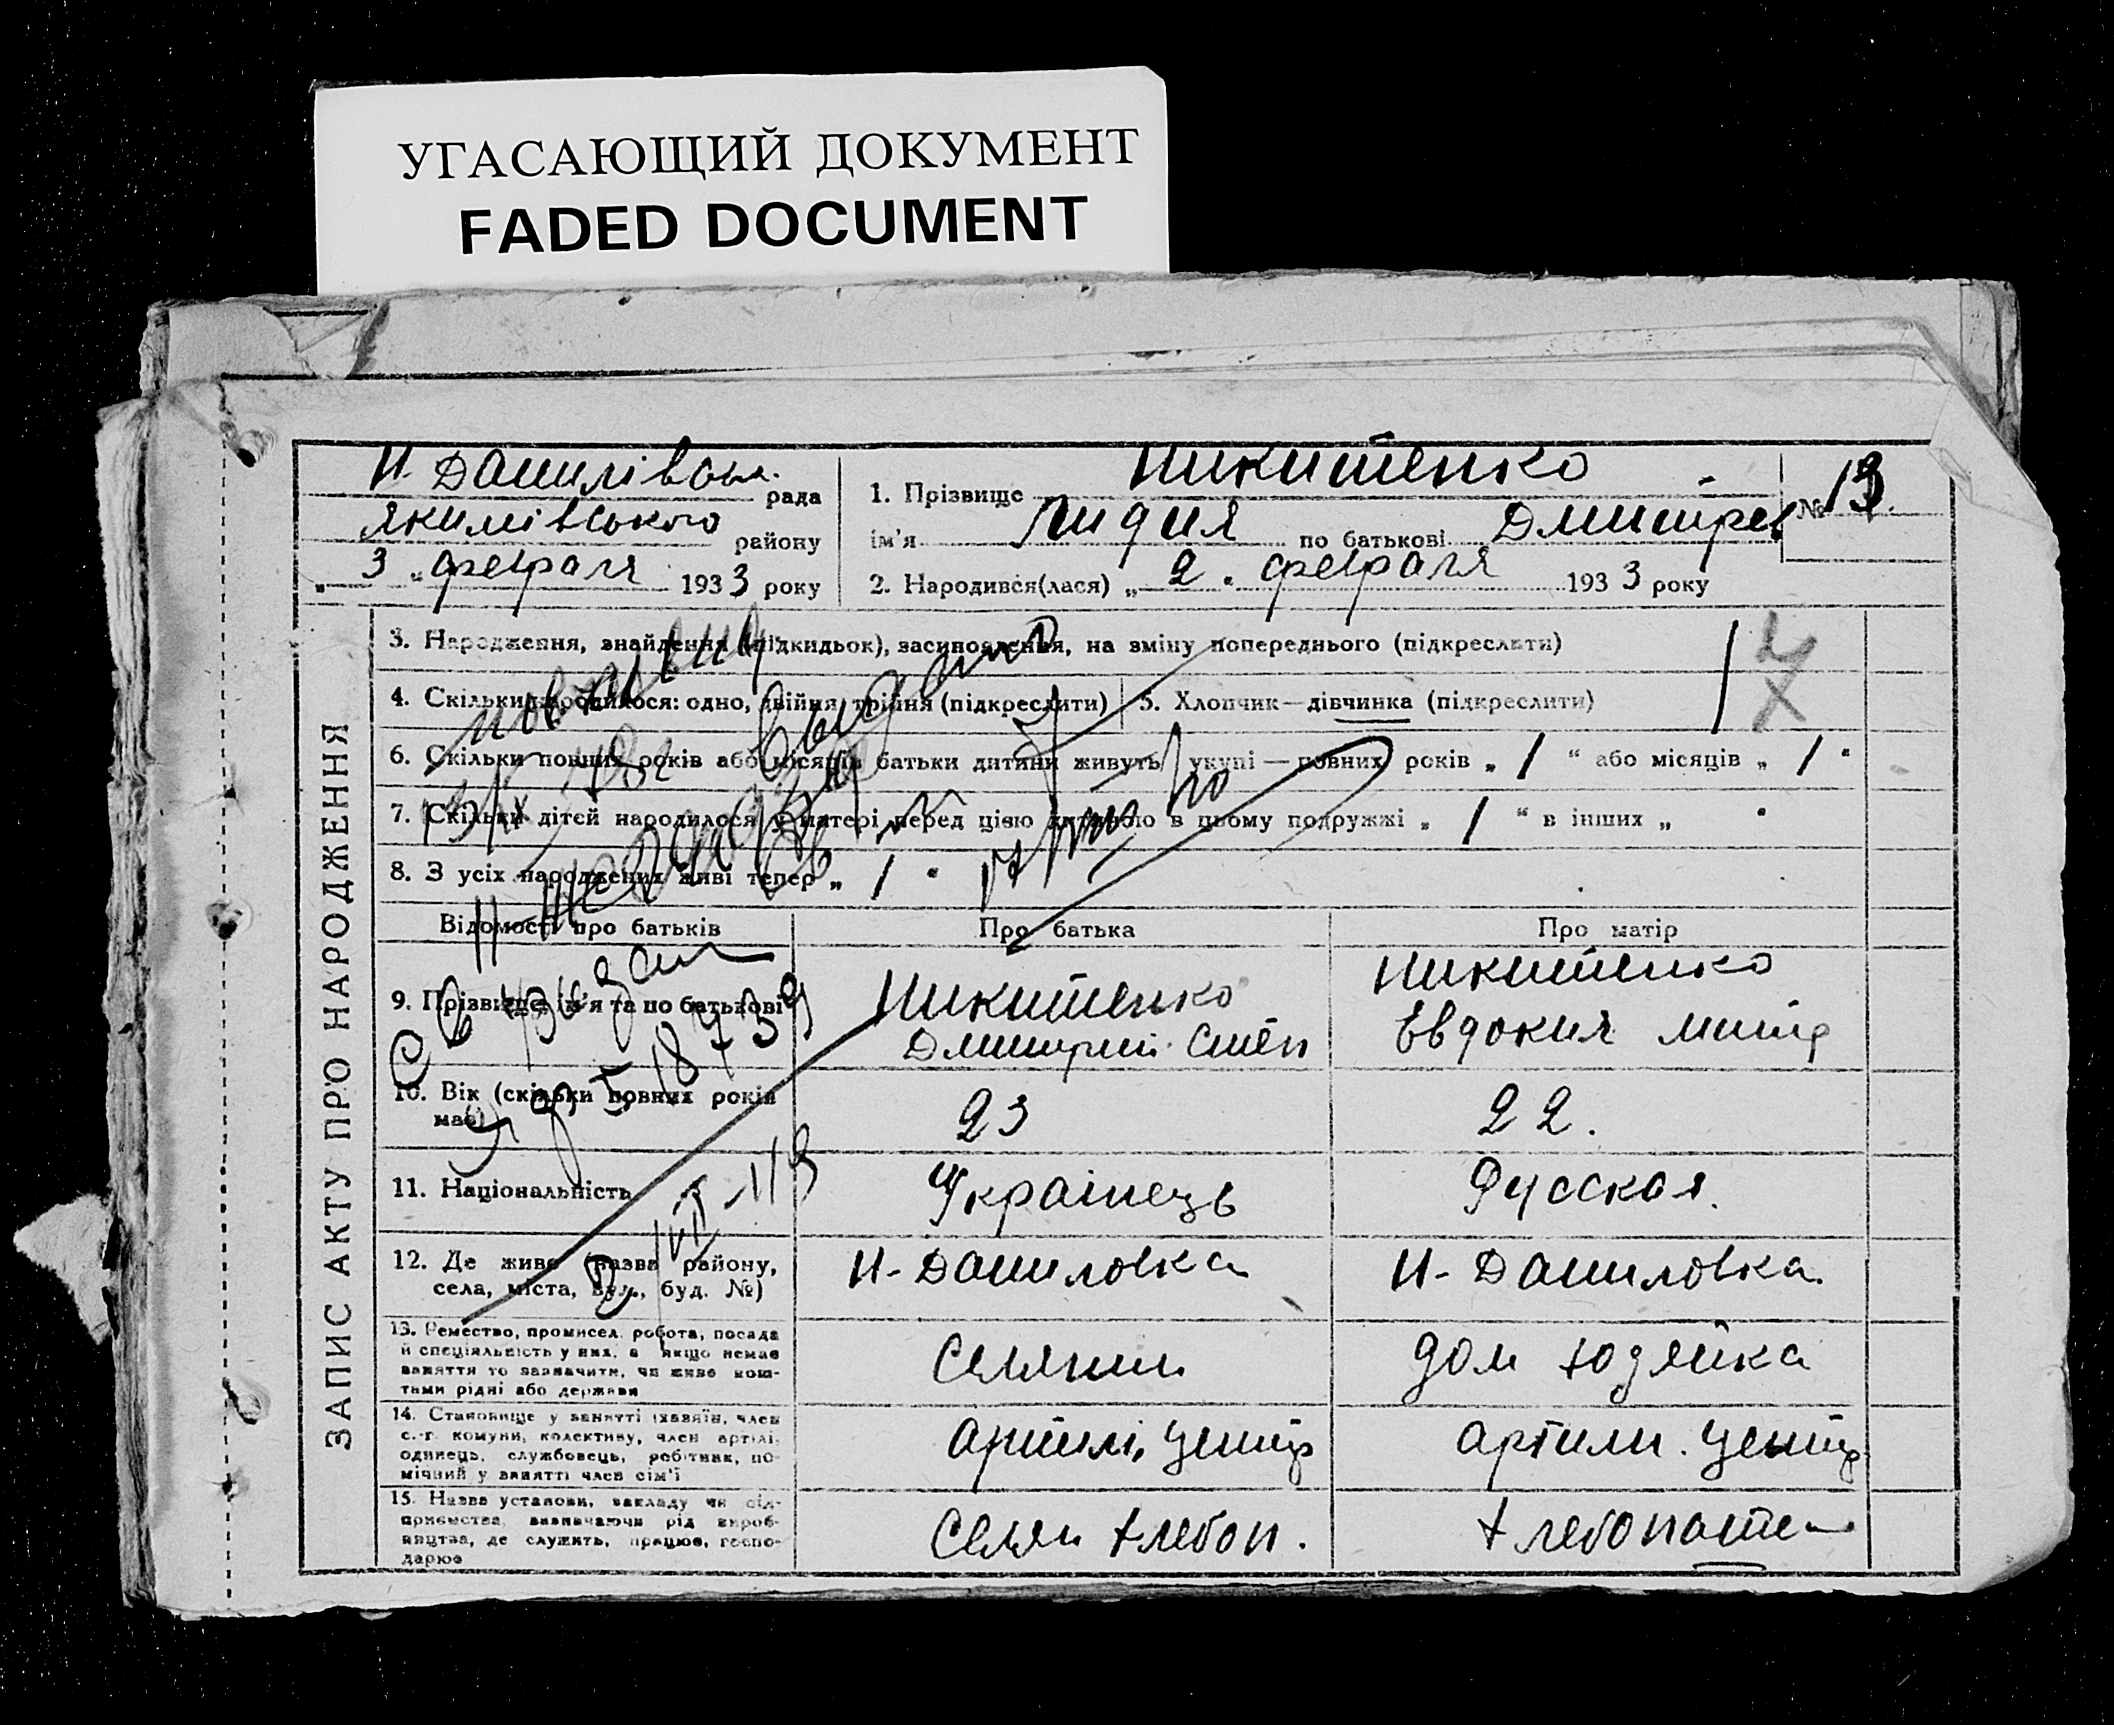 УГАСАЮЩИЙ ДОКУМЕНТ
FADED DOCUMENT
Н. Данилівська рада
Якимівського району
„ 3 " февраля 1933 року
1. Прізвище Никитенко
ім'я Лидия по батькові Дмитрев
№ 13.
2. Народився(лася) „ 2 " февраля 1933 року
ЗАПИС АКТУ ПРО НАРОДЖЕННЯ
3. Народження, знайдення (підкидьок), засиновлення, на зміну попереднього (підкреслити)
4. Скільки народилося: одно, двійня, трійня (підкреслити)
5. Хлопчик—дівчинка (підкреслити)
6. Скільки повних років або місяців батьки дитини живуть укупі — повних років „ 1 " або місяців „ 1 "
7. Скільки дітей народилося у матері перед цією дитиною в цьому подружжі „ 1 " в інших „ "
8. З усіх народжених живі тепер „ 1 "
Відомості про батьків
Про батька
Про матір
9. Прізвище, ім'я та по батькові
Никитенко
Дмитрий Степ
Никитенко
Евдокия Митр
10. Вік (скільки повних років має)
23
22.
11. Національність
Українець
Русская.
12. Де живе (назва району,
села, міста, вул., буд. №)
Н-Даниловка
Н-Даниловка.
13. Ремество, промисел, робота, посада
й спеціяльність у них, а якщо немає
заняття то зазначити, чи живе кош-
тами рідні або держави
Селянин
дом хозяйка
14. Становище у занятті (хазяїн, член
с.-г. комуни, колективу, член артілі,
одинець, службовець, робітник, по-
мічний у занятті член сім'ї
Артилі, Центр
Артили. Центр
15. Назва установи, закладу чи під-
приємства, визначаючи рід вироб-
ництва, де служить, працює, госпо-
дарює
Селян хлебоп.
хлебопашец